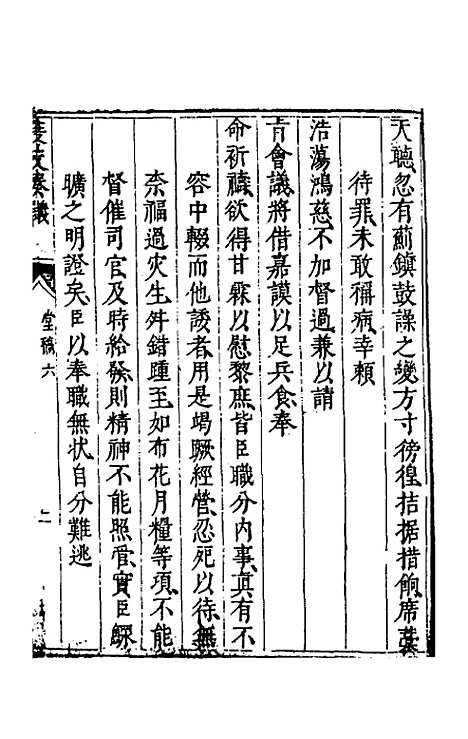 天聽忽有薊鎮鼓譟之變方寸徬徨拮据措餉席藁
待罪未敢稱病幸頼
浩蕩鴻慈不加督過兼以請
㫖會議將借嘉謨以足兵食奉
命祈禱欲得甘霖以慰黎庶皆臣職分内事真有不
容中輟而他諉者用是竭蹶經營忍死以待無
柰福過灾生舛錯踵至如布花月糧等項不能
督催司官及時給發則精神不能照管實臣鰥
曠之明證矣臣以奉職無狀自分難逃
奏議
堂稿六
二